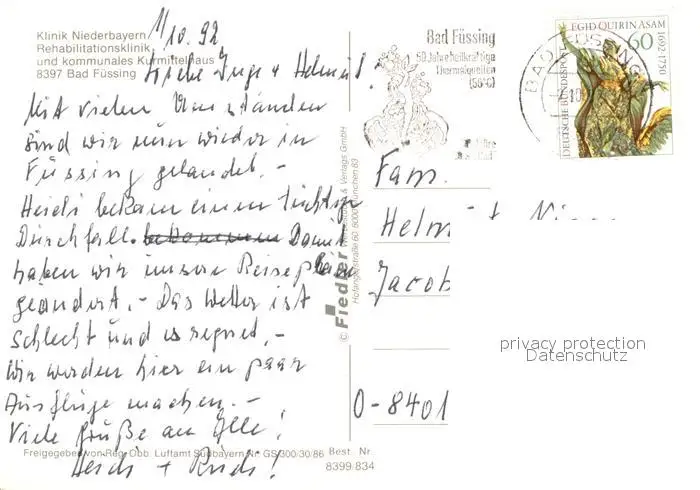 Klinik Niederbayern
Rehabilitationsklinik
und kommunales Kurmittelhaus
8397 Bad Füssing
11/10.92
Liebe Inge + Helmut!
Mit vielen Umständen
sind wir nun wieder in
Füssing gelandet. -
Heidi bekam einen tüchtigen
Durchfall. bekommen Damit
haben wir unsere Reisepläne
geändert. - Das Wetter ist
schlecht und es regnet. -
Wir werden hier ein paar
Ausflüge machen. -
Viele Grüße an Alle!
Heidi + Rudi!
Freigegeben von Reg. Obb. Luftamt Südbayern Nr. GS/300/30/86
Best. Nr.
8399/834
© Fiedler Verlags GmbH
Bad Füssing
50 Jahre heilkräftige
Thermalquellen
(56°C)
BAD FÜSSING
EGID QUIRIN ASAM
1692-1750
60
DEUTSCHE BUNDESPOST
Fam.
Helmut
Jacob
O-8401
privacy protection
Datenschutz